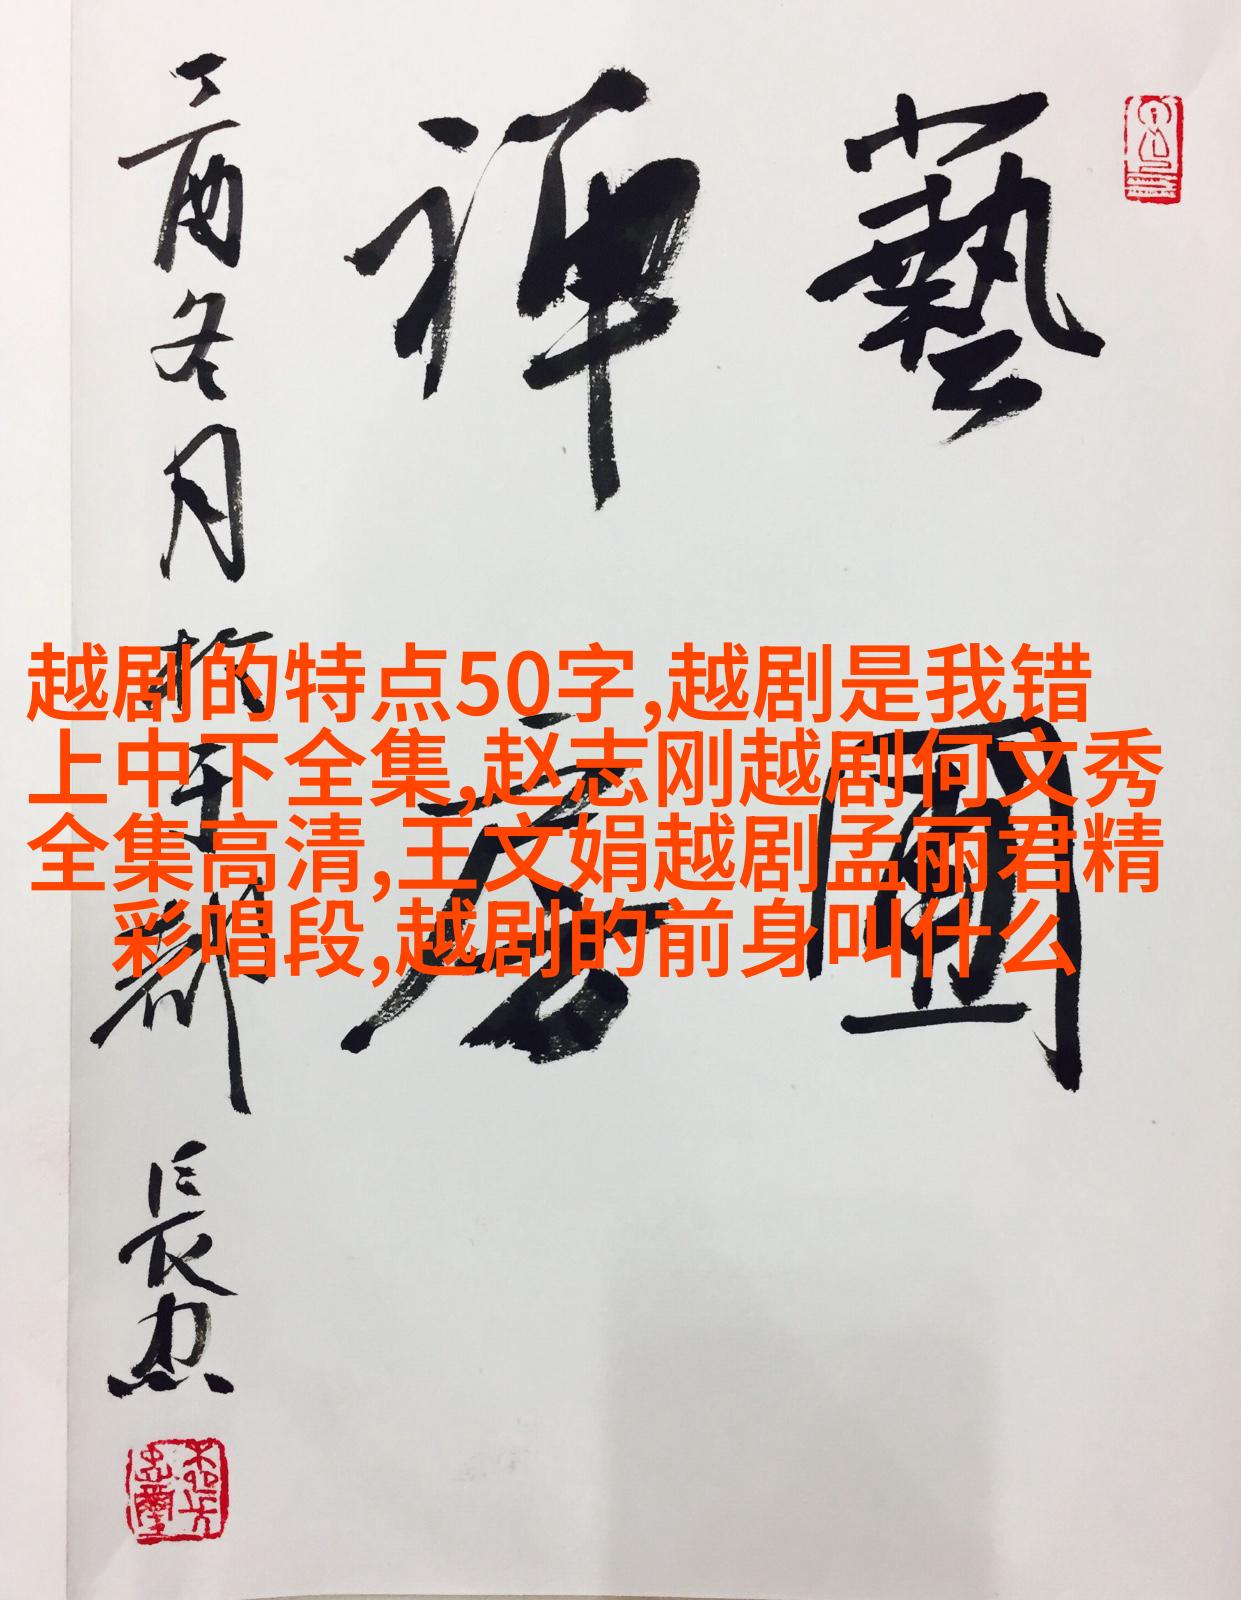 藝圃
禪房
丁酉冬月於成都
長忠
越剧的特点50字,越剧是我错
上中下全集,赵志刚越剧何文秀
全集高清,王文娟越剧孟丽君精
彩唱段,越剧的前身叫什么